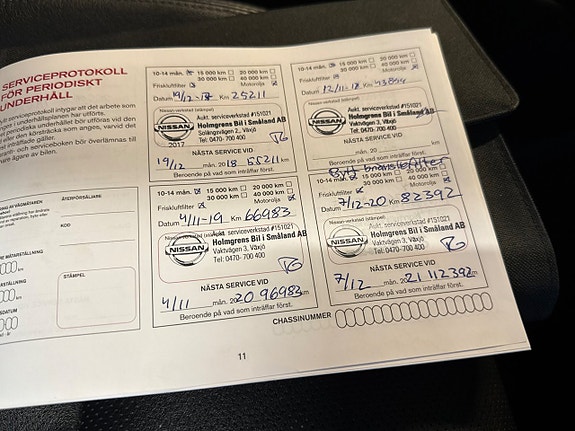 SERVICEPROTOKOLL
FÖR PERIODISKT
UNDERHÅLL
serviceprotokoll intygar att det arbete som
i underhållsplanen har utförts.
periodiska underhållet bör utföras vid den
der körsträcka som anges, varvid det
inträffade gäller.
och serviceboken bör överlämnas till
are ägare av bilen.
ÅTERFÖRSÄLJARE
KOD
STÄMPEL
10-14 mån. 15 000 km 20 000 km
30 000 km 40 000 km
Friskluftfilter Motorolja
Datum 19/12- Km 25211
Nissan-verkstad (stämpel)
Aukt. serviceverkstad #151021
Holmgrens Bil i Småland AB
Solängvägen 2, Växjö
Tel: 0470-700 400
NISSAN
2017
NÄSTA SERVICE VID
19/12 mån. 2018 55211 km
10-14 mån. 15 000 km 20 000 km
30 000 km 40 000 km
Friskluftfilter Motorolja
Datum 12/11-18 Km
Nissan-verkstad (stämpel)
Aukt. serviceverkstad #151021
Holmgrens Bil i Småland AB
Vaktvägen 3, Växjö
Tel: 0470-700 400
NISSAN
NÄSTA SERVICE VID
mån. 20 km
Beroende på vad som inträffar först.
10-14 mån. 15 000 km 20 000 km
30 000 km 40 000 km
Friskluftfilter Motorolja
Datum 4/11-19 Km 66983
Aukt. serviceverkstad #151021
Holmgrens Bil i Småland AB
Vaktvägen 3, Växjö
Tel: 0470-700 400
NISSAN
NÄSTA SERVICE VID
4/11 mån. 2020 96983 km
Beroende på vad som inträffar först.
Bytt bränslefilter
10-14 mån. 15 000 km 20 000 km
30 000 km 40 000 km
Friskluftfilter Motorolja
Datum 7/12-20 Km 82392
Nissan-verkstad (stämpel)
Aukt. serviceverkstad #151021
Holmgrens Bil i Småland AB
Vaktvägen 3, Växjö
Tel: 0470-700 400
NISSAN
NÄSTA SERVICE VID
7/12 mån. 2021 112392 km
Beroende på vad som inträffar först.
CHASSINUMMER
11